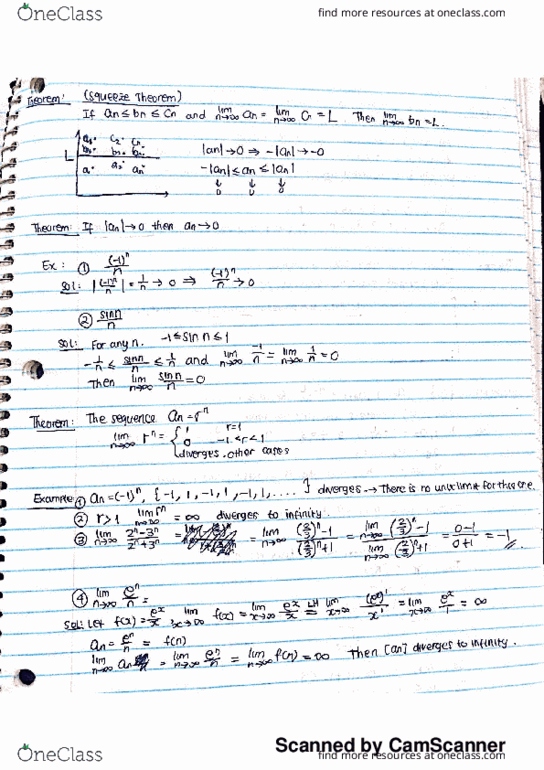 OneClass
find more resources at oneclass.com
Theorem: (Squeeze Theorem)
If an ≤ bn ≤ Cn and lim n→∞ an = lim n→∞ Cn = L Then lim n→∞ bn = L.
L
|an| → 0 ⇒ -|an| → -0
-|an| ≤ an ≤ |an|
↓ ↓ ↓
0 0 0
Theorem: If |an| → 0 then an → 0
Ex: ① (-1)^n / n
Sol: |(-1)^n / n| = 1/n → 0 ⇒ (-1)^n / n → 0
② sin n / n
Sol: For any n. -1 ≤ sin n ≤ 1
-1/n ≤ sin n / n ≤ 1/n and lim n→∞ -1/n = lim n→∞ 1/n = 0
Then lim n→∞ sin n / n = 0
Theorem: The sequence an = r^n
lim n→∞ r^n = { 1 r=1
0 -1 < r < 1
diverges. other cases
Example ① an = (-1)^n, {-1, 1, -1, 1, -1, 1, ....} diverges → There is no limit for this one.
② r > 1 lim n→∞ r^n = ∞ diverges to infinity.
③ lim n→∞ 2^n - 3^n / 2^n + 3^n = lim n→∞ (2/3)^n - 1 / (2/3)^n + 1 = lim n→∞ (2/3)^n - 1 / lim n→∞ (2/3)^n + 1 = 0-1 / 0+1 = -1
④ lim n→∞ e^n / n =
Sol: Let f(x) = e^x / x, lim x→∞ f(x) = lim x→∞ e^x / x LH = lim x→∞ (e^x)' / x' = lim x→∞ e^x / 1 = ∞
an = e^n / n = f(n)
lim n→∞ an = lim n→∞ e^n / n = lim n→∞ f(n) = ∞ Then {an} diverges to infinity.
Scanned by CamScanner
OneClass
find more resources at oneclass.com